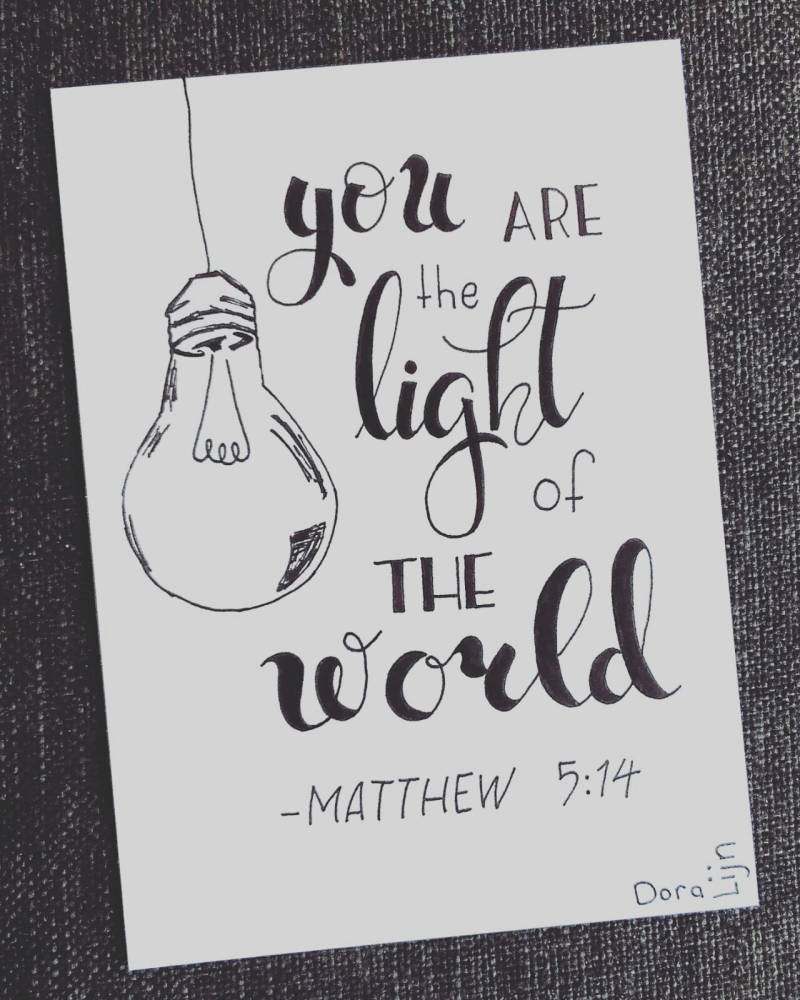 you ARE
the
light
of
THE
world
-MATTHEW 5:14
Dora
Lijn